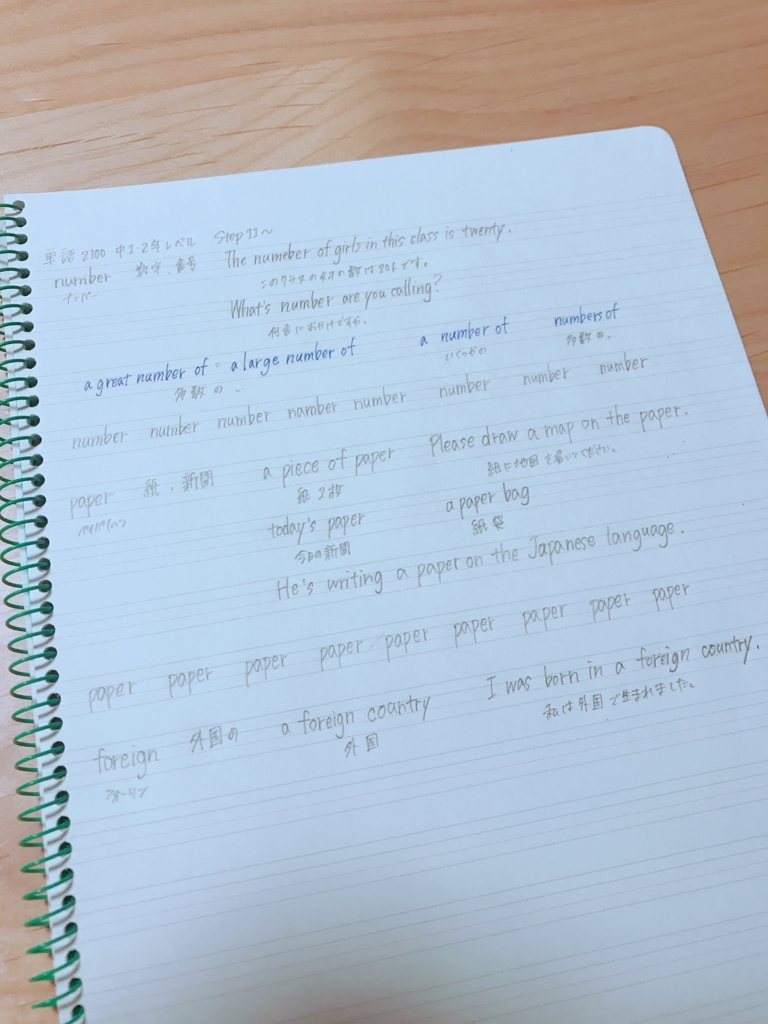 単語2300 中1·2年レベル Step11〜
number 数字、番号 The numeber of girls in this class is twenty.
ナンバー このクラスの女子の数は20人です。
What's number are you calling?
何番におかけですか。
a great number of = a large number of a number of numbers of
多数の… いくつかの 多数の。
number number number namber number number number number
paper 紙、新聞 a piece of paper Please draw a map on the paper.
紙1枚 紙に地図を書いてください。
today's paper a paper bag
今日の新聞 紙袋
He's writing a paper on the Japanese language.
paper paper paper paper paper paper paper paper paper
foreign 外国の a foreign country I was born in a foreign country.
フォーリン 外国 私は外国で生まれました。